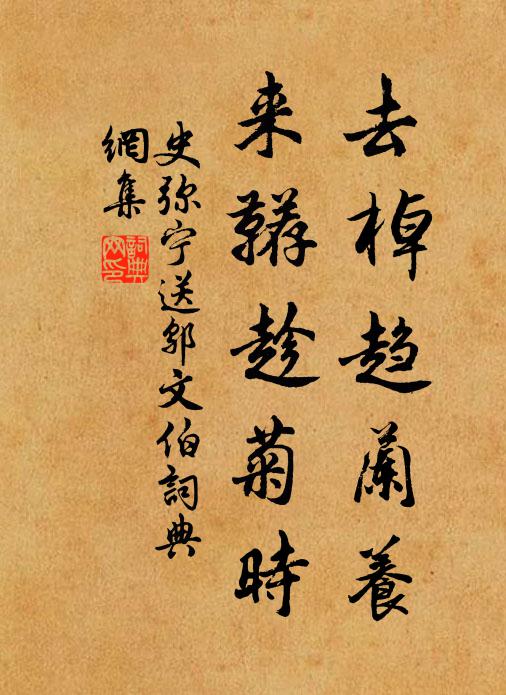 去棹趋蘭養
来韉趁菊時
史弥宁送鄔文伯詞典
網集
詞典
网印